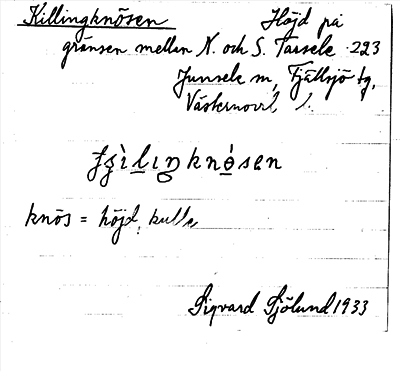 Killingknösen Höjd på
gränsen mellan N. och S. Tarsele 223
Junsele sn, Fjällsjö tg,
Västernorrl. l.
knös = höjd, kulle
Sigvard Sjölund 1933